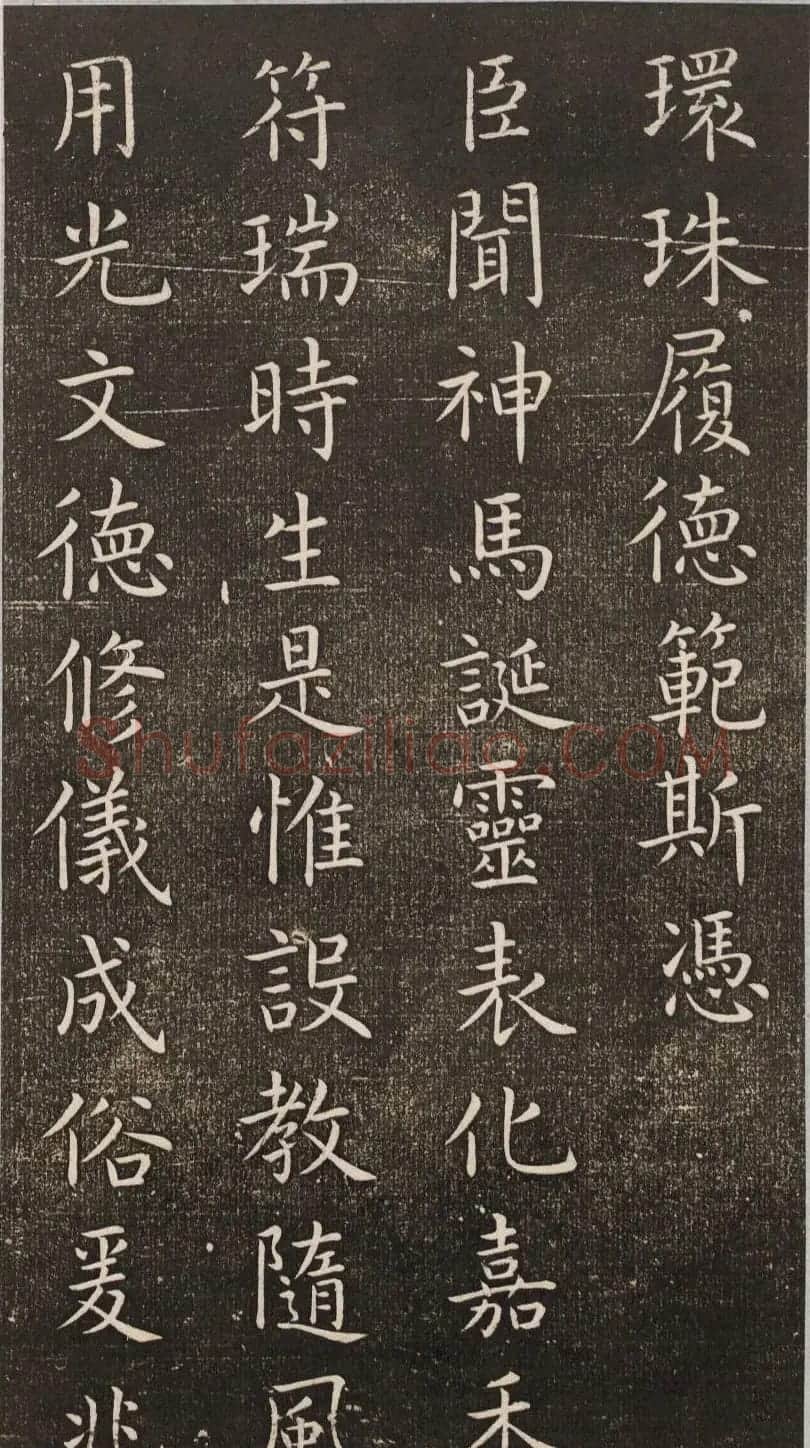 環珠履德範斯憑
臣聞神馬誕靈表化嘉禾
符瑞時生是惟設教隨風
用光文德修儀成俗爰兆
Shufaziliao.COM